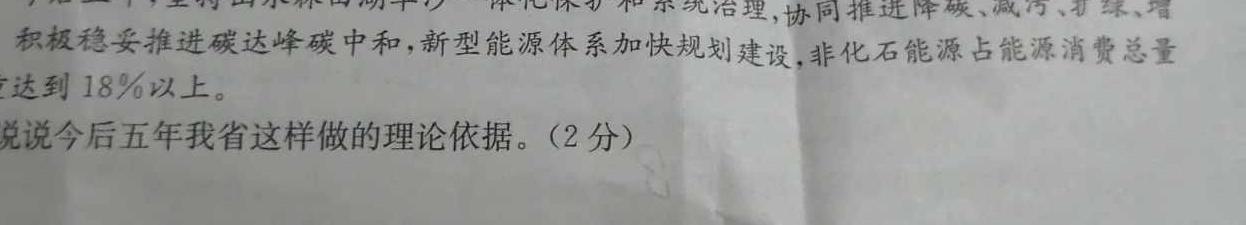 体化保护和系统治理,协同推进降碳、减污、扩绿、增
积极稳妥推进碳达峰碳中和,新型能源体系加快规划建设,非化石能源占能源消费总量
达到18%以上。
说说今后五年我省这样做的理论依据。(2分)